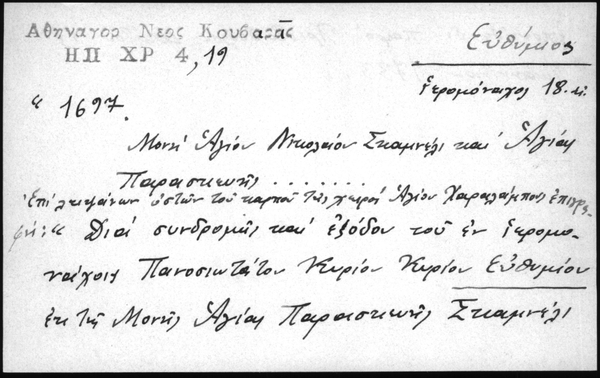 Ἀθηναγορ Νεος Κουβαρᾶς
ΗΠ ΧΡ 4, 19
Εὐθύμιος
ἱερομόναχος 18. αἰ.
" 1697.
Μονή Ἁγίου Νικολάου Σκαμνέλι καί Ἁγίας
Παρασκευῆς . . . . . . .
Ἐπί λειψάνων ὀστῶν τοῦ καρποῦ τῆς χειρός Ἁγίου Χαραλάμπους ἐπιγρα-
φή: " Διά συνδρομῆς καί ἐξόδου τοῦ ἐν ἱερομο-
νάχοις Πανοσιωτάτου Κυρίου Κυρίου Εὐθυμίου
ἐκ τῆς Μονῆς Ἁγίας Παρασκευῆς Σκαμνέλι